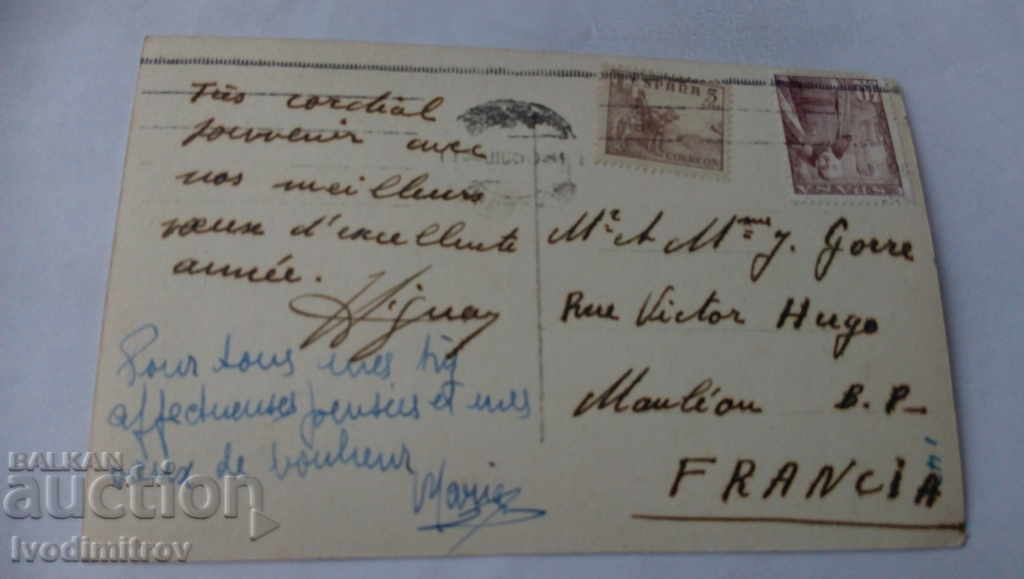 Très cordial
souvenir avec
nos meilleurs
vœux d'excellente
année.
Pour tous mes très
affectueuses pensées et mes
vœux de bonheur
Marie
ESPAÑA 5
CORREOS
ESPAÑA
Mr & Mme J. Gorre
Rue Victor Hugo
Mauléon B. P.
FRANCIA
BALKAN
auction
Ivodimitrov